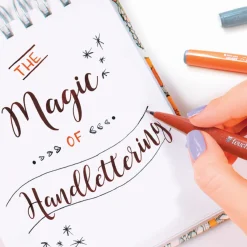 THE
Magic
OF
Handlettering